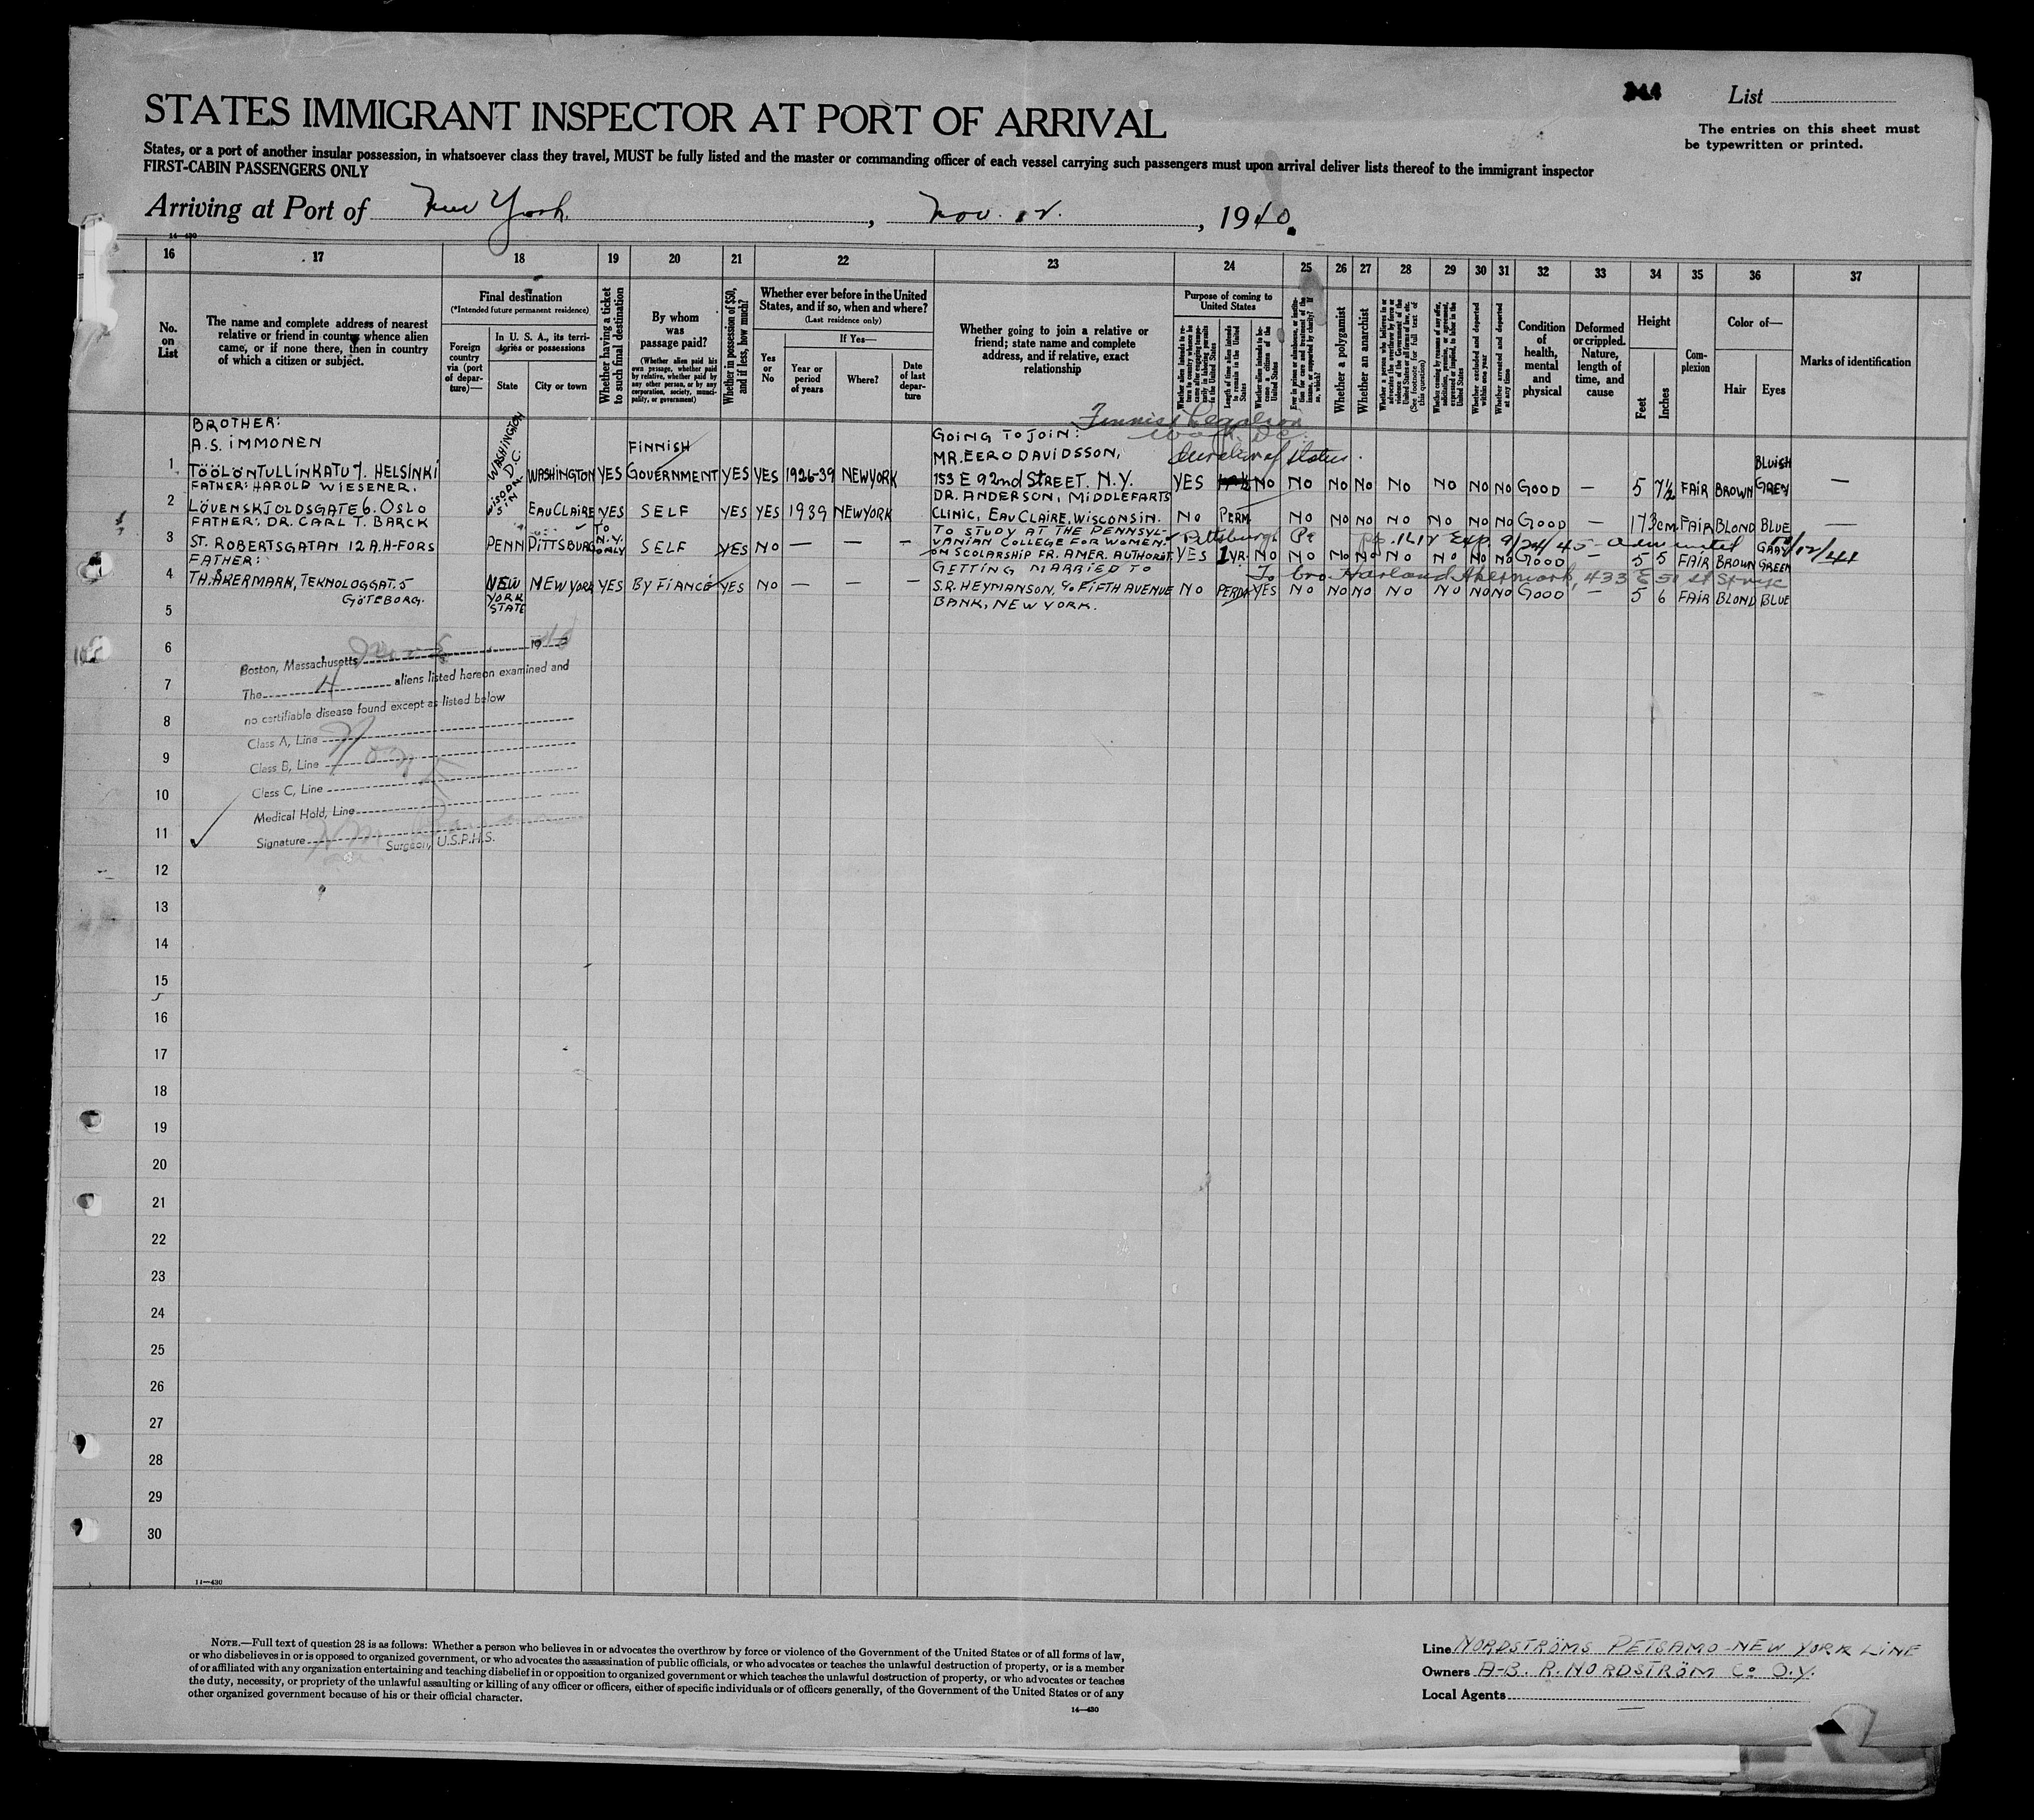 List
The entries on this sheet must
be typewritten or printed.
STATES IMMIGRANT INSPECTOR AT PORT OF ARRIVAL
States, or a port of another insular possession, in whatsoever class they travel, MUST be fully listed and the master or commanding officer of each vessel carrying such passengers must upon arrival deliver lists thereof to the immigrant inspector
FIRST-CABIN PASSENGERS ONLY
Arriving at Port of New York, Nov. 12. , 1940.
14—430
16 17 18 19 20 21 22 23 24 25 26 27 28 29 30 31 32 33 34 35 36 37
No. on List
The name and complete address of nearest
relative or friend in country whence alien
came, or if none there, then in country
of which a citizen or subject.
Final destination
(*Intended future permanent residence)
Foreign country via (port of departure)—
In U. S. A., its territories or possessions
State
City or town
Whether having a ticket to such final destination
By whom was passage paid?
(Whether alien paid his own passage, whether paid by relative, whether paid by any other person, or by any corporation, society, municipality, or government)
Whether in possession of $50, and if less, how much?
Whether ever before in the United States, and if so, when and where?
(Last residence only)
Yes or No
If Yes—
Year or period of years
Where?
Date of last departure
Whether going to join a relative or friend; state name and complete address, and if relative, exact relationship
Purpose of coming to United States
Length of time alien intends to remain in the United States
Whether alien intends to become a citizen of the United States
Whether a polygamist
Whether an anarchist
Whether excluded and deported within one year
Whether arrested and deported at any time
Condition of health, mental and physical
Deformed or crippled. Nature, length of time, and cause
Height
Feet
Inches
Complexion
Color of—
Hair
Eyes
Marks of identification
BROTHER:
A.S. IMMONEN
1 TÖÖLÖNTULLINKATU 7. HELSINKI WASHINGTON D.C. WASHINGTON YES FINNISH GOVERNMENT YES YES 1926-39 NEW YORK GOING TO JOIN: MR. EERO DAVIDSSON, 153 E 92nd STREET. N.Y. YES NO NO NO NO NO NO NO NO GOOD — 5 7½ FAIR BROWN BLUISH GREY —
FATHER: HAROLD WIESENER.
2 LÖVENSKJOLDSGATE 6. OSLO EAU CLAIRE YES SELF YES YES 1939 NEW YORK DR. ANDERSON, MIDDLEFARTS CLINIC, EAU CLAIRE, WISCONSIN. NO PERM NO NO NO NO NO NO NO GOOD — 173cm FAIR BLOND BLUE —
FATHER: DR. CARL T. BARCK
3 ST. ROBERTSGATAN 12 A. H-FORS PENN PITTSBURG TO N.Y. ONLY SELF YES NO — — — TO STUDY AT THE PENNSYLVANIAN COLLEGE FOR WOMEN. ON SCOLARSHIP FR. AMER. AUTHORIT. YES 1 YR. NO NO NO NO NO NO NO NO GOOD — 5 5 FAIR BROWN GRAY GREEN
FATHER:
4 TH. ÅKERMARK, TEKNOLOGGAT. 5 GÖTEBORG. NEW YORK STATE NEW YORK YES BY FIANCÉ YES NO — — — GETTING MARRIED TO S.R. HEYMANSON, c/o FIFTH AVENUE BANK, NEW YORK. NO PERM YES NO NO NO NO NO NO NO GOOD — 5 6 FAIR BLOND BLUE
Pittsburgh Pa
5
6
7
8
9
10
11
12
13
14
15
16
17
18
19
20
21
22
23
24
25
26
27
28
29
30
Boston, Massachusetts 19
The 4 aliens listed hereon examined and
no certifiable disease found except as listed below
Class A, Line
Class B, Line
Class C, Line
Medical Hold, Line
Signature
Surgeon, U.S.P.H.S.
11—430
NOTE.—Full text of question 28 is as follows: Whether a person who believes in or advocates the overthrow by force or violence of the Government of the United States or of all forms of law,
or who disbelieves in or is opposed to organized government, or who advocates the assassination of public officials, or who advocates or teaches the unlawful destruction of property, or is a member
of or affiliated with any organization entertaining and teaching disbelief in or opposition to organized government or which teaches the unlawful destruction of property, or who advocates or teaches
the duty, necessity, or propriety of the unlawful assaulting or killing of any officer or officers, either of specific individuals or of officers generally, of the Government of the United States or of any
other organized government because of his or their official character.
14—430
Line NORDSTRÖMS PETSAMO-NEW YORK LINE
Owners A-B. R. NORDSTRÖM Co O.Y.
Local Agents